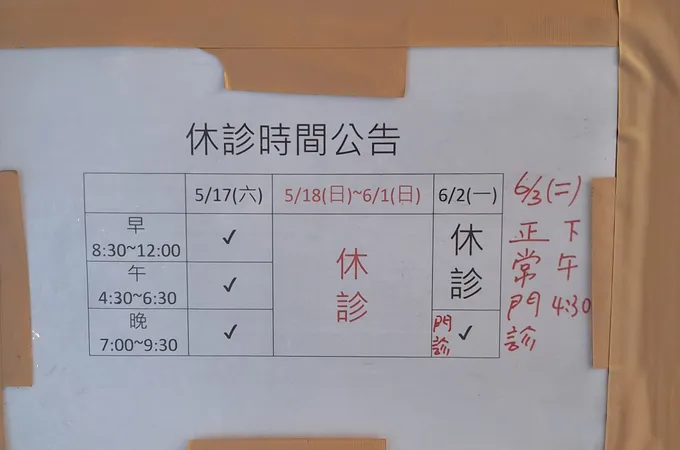 休診時間公告
5/17(六) 5/18(日)~6/1(日) 6/2(一)
早
8:30~12:00 ✓
午
4:30~6:30 ✓
晚
7:00~9:30 ✓
休診
休診
門診 ✓
6/3(二)
下午4:30
正常門診